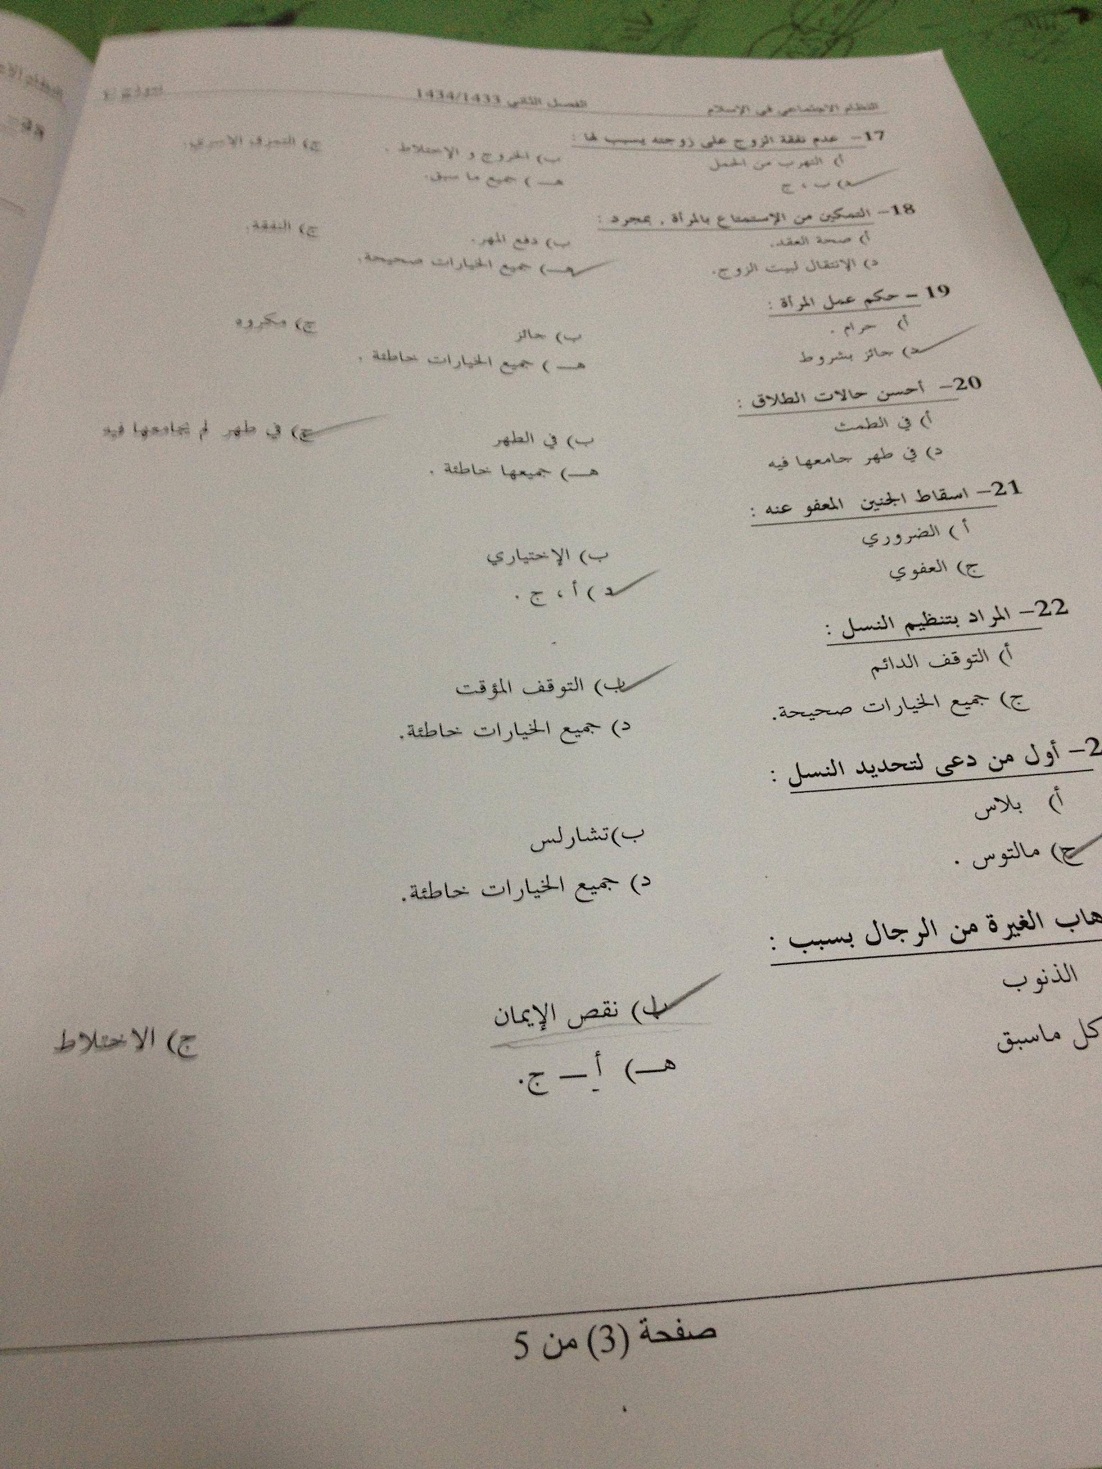 النظام الاجتماعي في الإسلام الفصل الثاني 1434/1433
17- عدم نفقة الزوج على زوجته يسبب لها :
أ) التهرب من الحمل ب) الخروج و الإختلاط . ج) التمزق الأسري.
د) ب ، ج هـ ) جميع ما سبق.
18- التمكين من الإستمتاع بالمرأة . بمجرد :
أ) صحة العقد. ب) دفع المهر. ج) النفقة.
د) الانتقال لبيت الزوج. هـ) جميع الخيارات صحيحة.
19 – حكم عمل المرأة :
أ) حرام . ب) جائز ج) مكروه
د) جائز بشروط هـ ) جميع الخيارات خاطئة .
20- أحسن حالات الطلاق :
أ) في الطمث ب) في الطهر ج) في طهر لم يجامعها فيه
د) في طهر جامعها فيه هـ) جميعها خاطئة .
21- اسقاط الجنين المعفو عنه :
أ ) الضروري ب) الإختياري
ج) العفوي د ) أ ، ج .
22- المراد بتنظيم النسل :
أ) التوقف الدائم ب) التوقف المؤقت
ج) جميع الخيارات صحيحة. د) جميع الخيارات خاطئة.
2- أول من دعى لتحديد النسل :
أ) بلاس ب)تشارلس
ج) مالتوس . د) جميع الخيارات خاطئة.
هاب الغيرة من الرجال بسبب :
الذنوب ب) نقص الإيمان ج) الاختلاط
كل ماسبق هـ) أ – ج.
صفحة (3) من 5